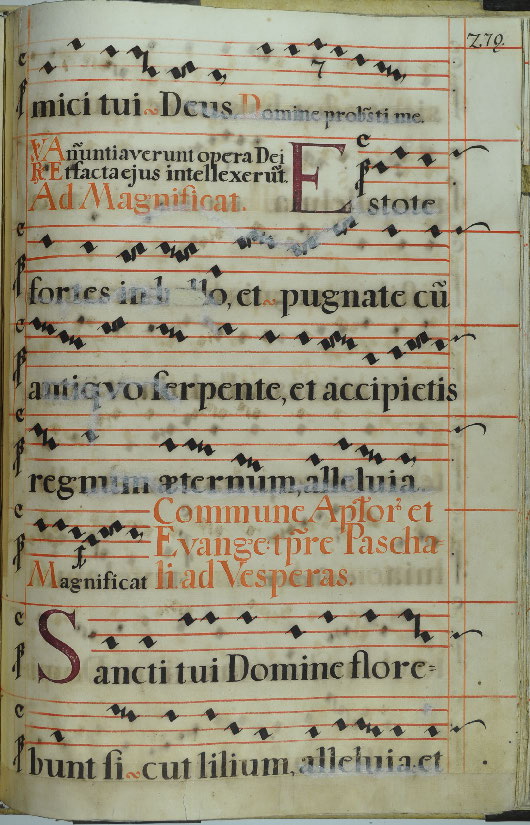 Z.79.
mici tui ~ Deus. Domine probasti me.
℣ Anũntiaverunt opera Dei
℟ Et facta ejus intellexerũt.
Ad Magnificat.
Estote
fortes in llo, et ~ pugnate cũ
antiquo serpente, et accipietis
regnum æternum, alleluia.
Commune Aptor̃ et
Evange. tp̃re Pascha
Magnificat li ad Vesperas.
Sancti tui Domine flore-
bunt si ~ cut lilium, alleluia, et